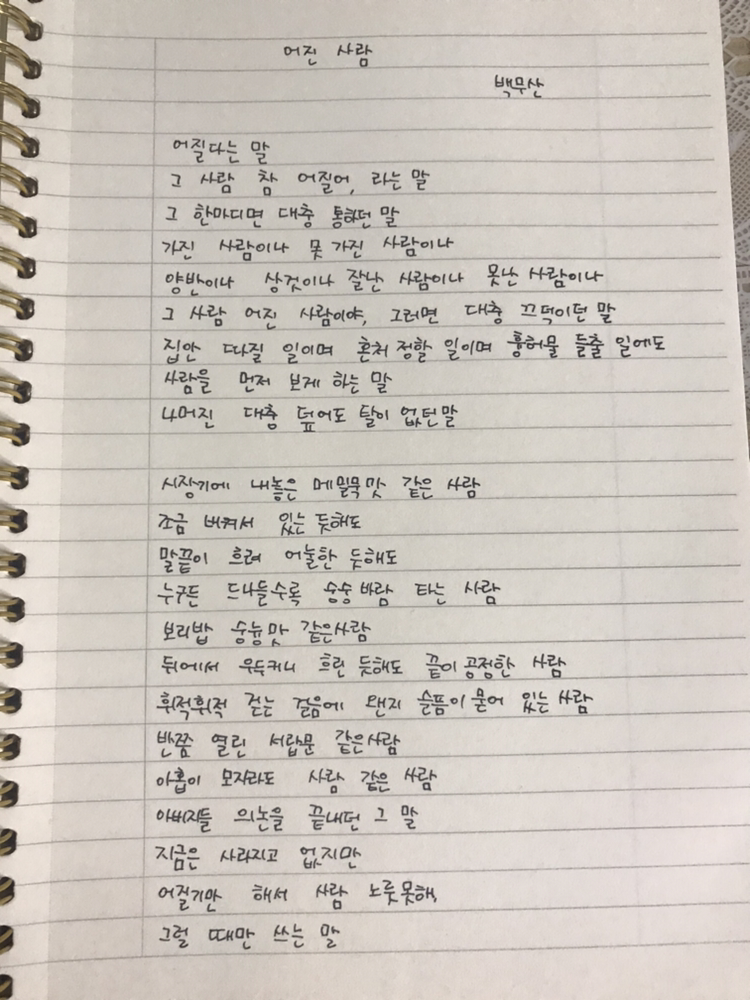 어진 사람
백무산
어질다는 말
그 사람 참 어질어, 라는 말
그 한마디면 대충 통하던 말
가진 사람이나 못 가진 사람이나
양반이나 상것이나 잘난 사람이나 못난 사람이나
그 사람 어진 사람이야, 그러면 대충 끄덕이던 말
집안 따질 일이며 혼처 정할 일이며 흉허물 들출 일에도
사람을 먼저 보게 하는 말
나머진 대충 덮어도 탈이 없던 말
시장기에 내놓은 메밀묵 맛 같은 사람
조금 비켜서 있는 듯해도
말끝이 흐려 어눌한 듯해도
누구든 드나들수록 숭숭 바람 타는 사람
보리밥 숭늉 맛 같은 사람
뒤에서 우두커니 흐린 듯해도 끝이 공정한 사람
휘적휘적 걷는 걸음에 왠지 슬픔이 묻어 있는 사람
반쯤 열린 서랍문 같은 사람
아홉이 모자라도 사람 같은 사람
아버지들 의논을 끝내던 그 말
지금은 사라지고 없지만
어질기만 해서 사람 노릇 못해,
그럴 때만 쓰는 말